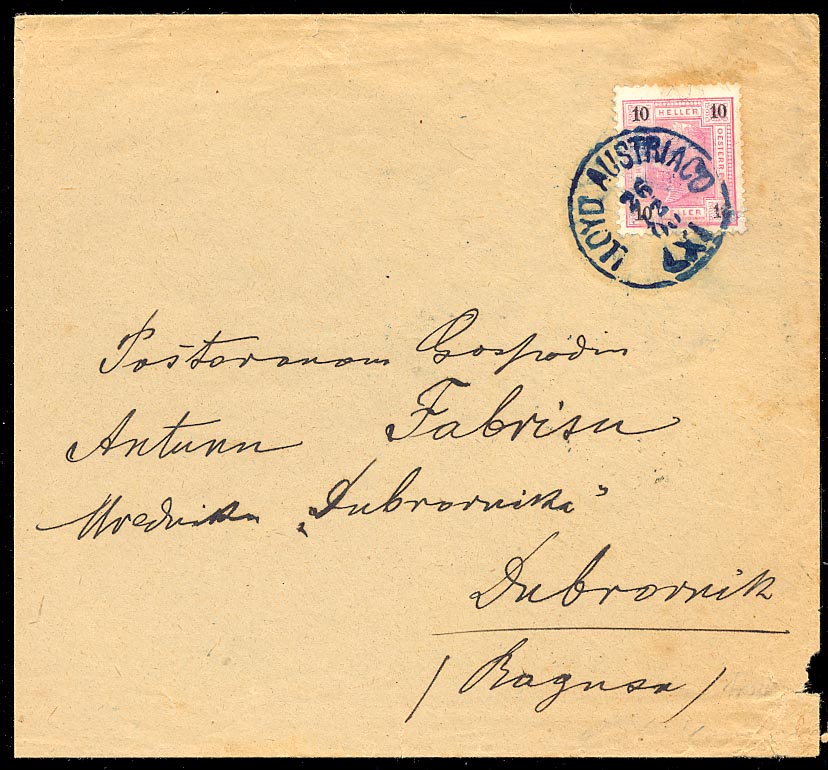 10 HELLER 10
OESTERR
10 LLER 1
LLOYD AUSTRIACO
LXI
Poštovanom Gospodin
Antunu Fabrisu
Uredniku „Dubrovnika"
Dubrovnik
/ Ragusa /